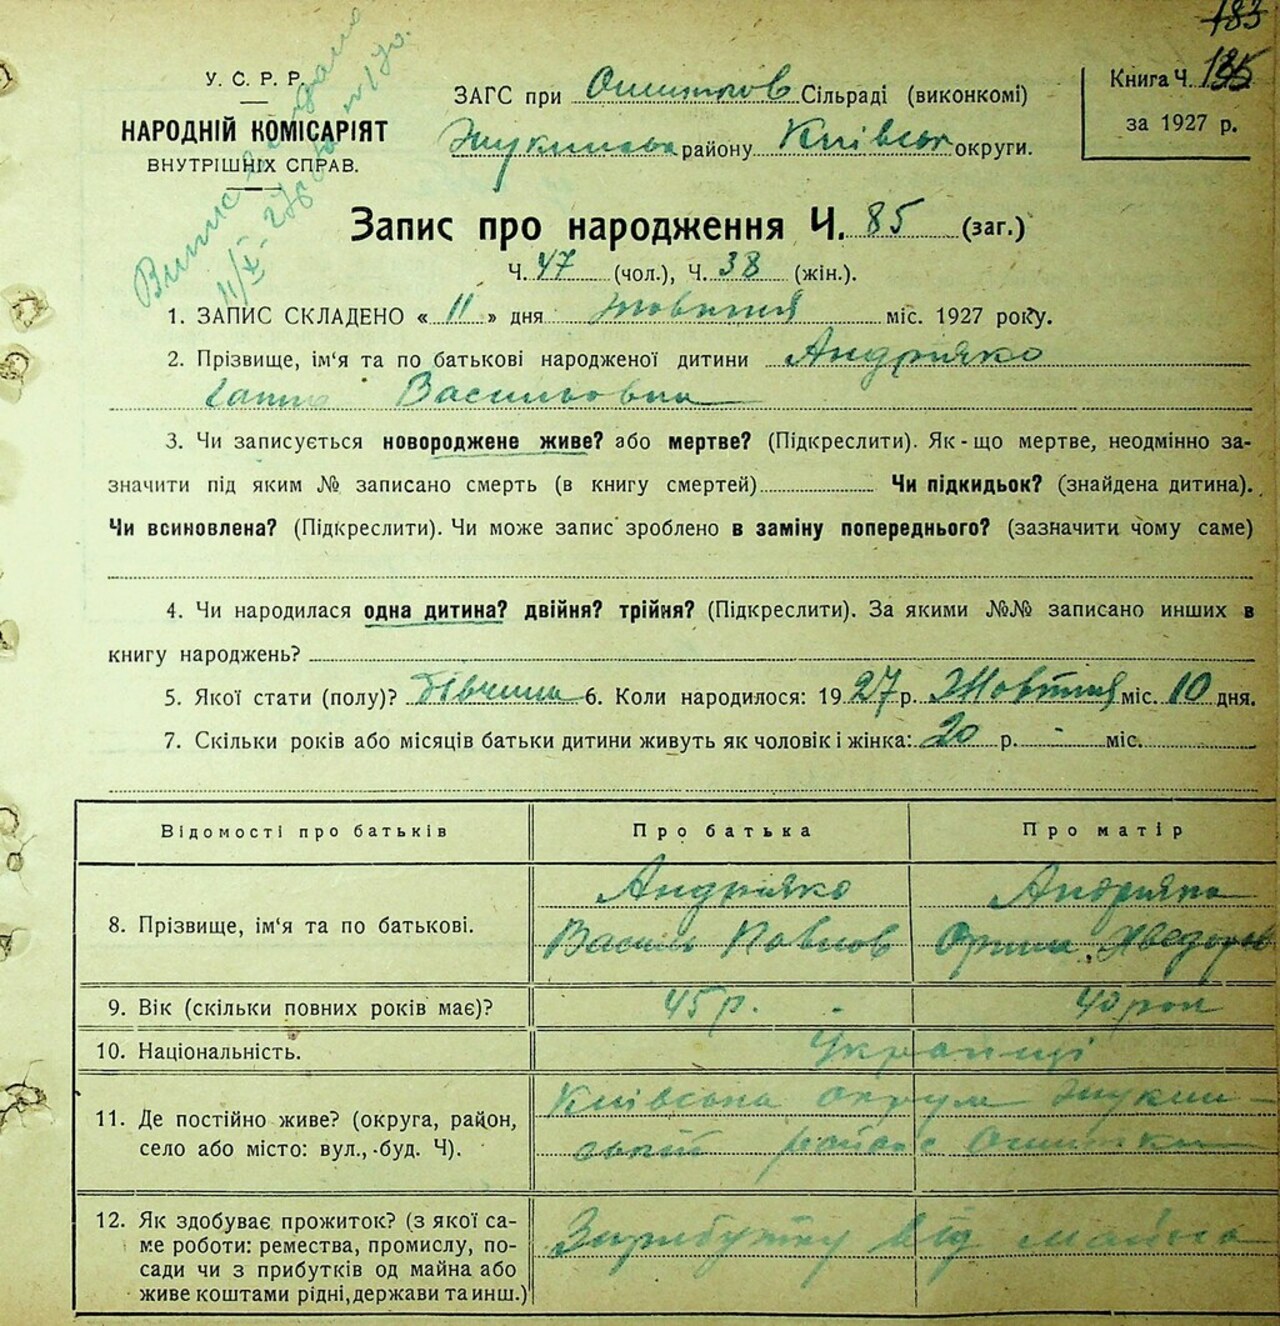 183
135
У. С. Р. Р.
НАРОДНІЙ КОМІСАРІЯТ
ВНУТРІШНІХ СПРАВ.
ЗАГС при Сільраді (виконкомі)
району Київськ округи.
Книга Ч.
за 1927 р.
Запис про народження Ч. 85 (заг.)
Ч. 47 (чол.), Ч. 38 (жін.).
1. ЗАПИС СКЛАДЕНО « 11 » дня Жовтня міс. 1927 року.
2. Прізвище, ім‘я та по батькові народженої дитини Андріяко
Ганна Васильовна
3. Чи записується новороджене живе? або мертве? (Підкреслити). Як-що мертве, неодмінно за-
значити під яким № записано смерть (в книгу смертей) Чи підкидьок? (знайдена дитина).
Чи всиновлена? (Підкреслити). Чи може запис зроблено в заміну попереднього? (зазначити чому саме)
4. Чи народилася одна дитина? двійня? трійня? (Підкреслити). За якими №№ записано инших в
книгу народжень?
5. Якої стати (полу)? Дівчина 6. Коли народилося: 1927 р. Жовтня міс. 10 дня.
7. Скільки років або місяців батьки дитини живуть як чоловік і жінка: 20 р. - міс.
Відомості про батьків Про батька Про матір
8. Прізвище, ім‘я та по батькові. Андріяко Андріяко
Василь Павлов Орина Хведоров
9. Вік (скільки повних років має)? 45 р. 40 рок
10. Національність. Українці
11. Де постійно живе? (округа, район, Київська округа Жукин-
село або місто: вул., буд. Ч). ський район с Ошитки
12. Як здобуває прожиток? (з якої са-
ме роботи: ремества, промислу, по-
сади чи з прибутків од майна або
живе коштами рідні, держави та инш.) Зприбутку від майна